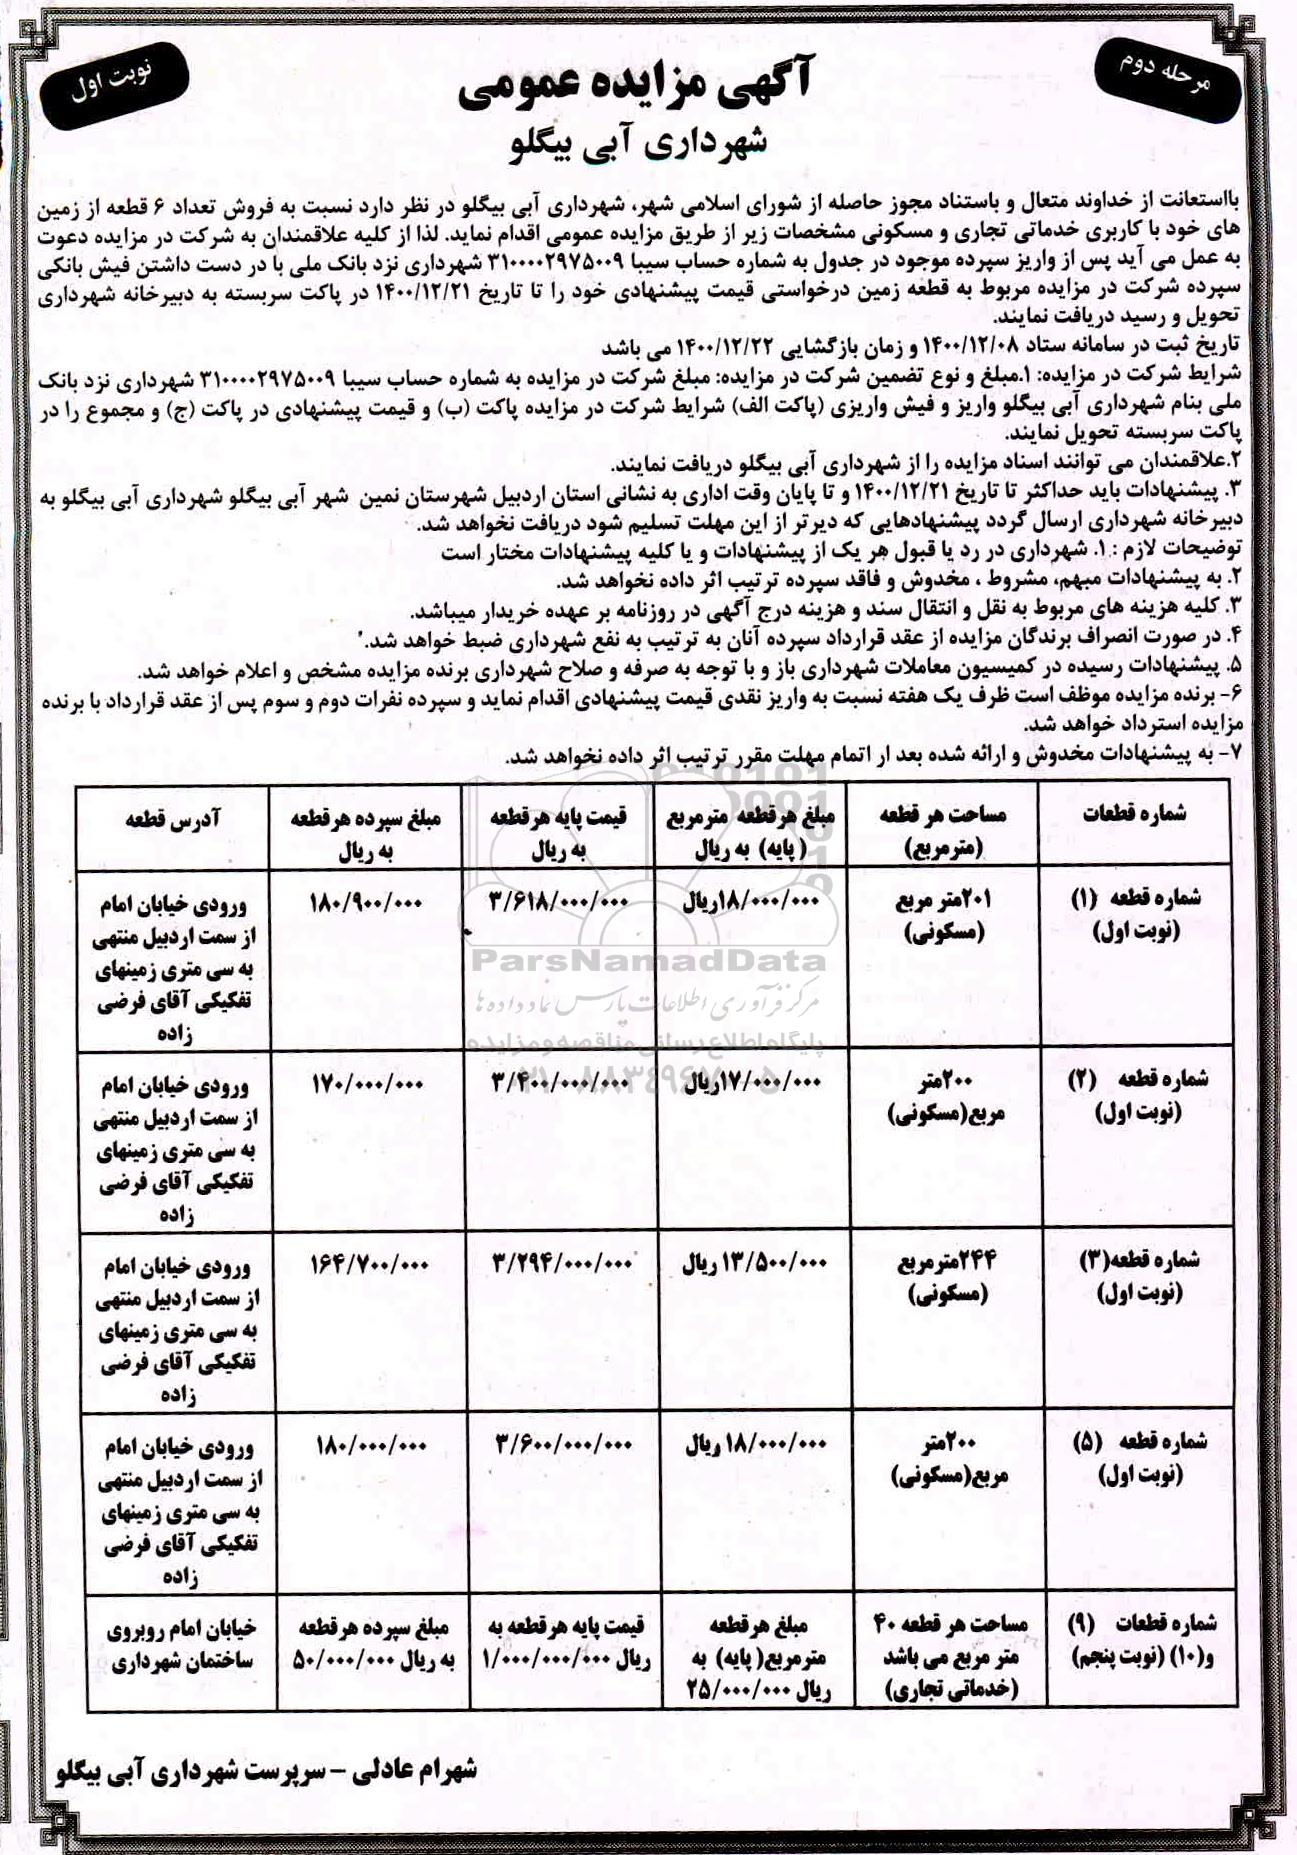 مرحله دوم
نوبت اول
آگهی مزایده عمومی
شهرداری آبی بیگلو
بااستعانت از خداوند متعال و باستناد مجوز حاصله از شورای اسلامی شهر، شهرداری آبی بیگلو در نظر دارد نسبت به فروش تعداد ۶ قطعه از زمین
های خود با کاربری خدماتی تجاری و مسکونی مشخصات زیر از طریق مزایده عمومی اقدام نماید. لذا از کلیه علاقمندان به شرکت در مزایده دعوت
به عمل می آید پس از واریز سپرده موجود در جدول به شماره حساب سیبا ۳۱۰۰۰۰۲۹۷۵۰۰۹ شهرداری نزد بانک ملی با در دست داشتن فیش بانکی
سپرده شرکت در مزایده مربوط به قطعه زمین درخواستی قیمت پیشنهادی خود را تا تاریخ ۱۴۰۰/۱۲/۲۱ در پاکت سربسته به دبیرخانه شهرداری
تحویل و رسید دریافت نمایند.
تاریخ ثبت در سامانه ستاد ۱۴۰۰/۱۲/۰۸ و زمان بازگشایی ۱۴۰۰/۱۲/۲۲ می باشد
شرایط شرکت در مزایده: ۱.مبلغ و نوع تضمین شرکت در مزایده: مبلغ شرکت در مزایده به شماره حساب سیبا ۳۱۰۰۰۰۲۹۷۵۰۰۹ شهرداری نزد بانک
ملی بنام شهرداری آبی بیگلو واریز و فیش واریزی (پاکت الف) شرایط شرکت در مزایده پاکت (ب) و قیمت پیشنهادی در پاکت (ج) و مجموع را در
پاکت سربسته تحویل نمایند.
۲.علاقمندان می توانند اسناد مزایده را از شهرداری آبی بیگلو دریافت نمایند.
۳. پیشنهادات باید حداکثر تا تاریخ ۱۴۰۰/۱۲/۲۱ و تا پایان وقت اداری به نشانی استان اردبیل شهرستان نمین شهر آبی بیگلو شهرداری آبی بیگلو به
دبیرخانه شهرداری ارسال گردد پیشنهادهایی که دیرتر از این مهلت تسلیم شود دریافت نخواهد شد.
توضیحات لازم : ۱. شهرداری در رد یا قبول هر یک از پیشنهادات و یا کلیه پیشنهادات مختار است
۲. به پیشنهادات مبهم، مشروط ، مخدوش و فاقد سپرده ترتیب اثر داده نخواهد شد.
۳. کلیه هزینه های مربوط به نقل و انتقال سند و هزینه درج آگهی در روزنامه بر عهده خریدار میباشد.
۴. در صورت انصراف برندگان مزایده از عقد قرارداد سپرده آنان به ترتیب به نفع شهرداری ضبط خواهد شد.
۵. پیشنهادات رسیده در کمیسیون معاملات شهرداری باز و با توجه به صرفه و صلاح شهرداری برنده مزایده مشخص و اعلام خواهد شد.
۶- برنده مزایده موظف است ظرف یک هفته نسبت به واریز نقدی قیمت پیشنهادی اقدام نماید و سپرده نفرات دوم و سوم پس از عقد قرارداد با برنده
مزایده استرداد خواهد شد.
۷- به پیشنهادات مخدوش و ارائه شده بعد ار اتمام مهلت مقرر ترتیب اثر داده نخواهد شد.
شماره قطعات
مساحت هر قطعه
(مترمربع)
مبلغ هرقطعه مترمربع
(پایه) به ریال
قیمت پایه هرقطعه
به ریال
مبلغ سپرده هرقطعه
به ریال
آدرس قطعه
شماره قطعه (۱)
(نوبت اول)
۲۰۱متر مربع
(مسکونی)
۱۸/۰۰۰/۰۰۰ریال
۳/۶۱۸/۰۰۰/۰۰۰
۱۸۰/۹۰۰/۰۰۰
ورودی خیابان امام
از سمت اردبیل منتهی
به سی متری زمینهای
تفکیکی آقای فرضی
زاده
شماره قطعه (۲)
(نوبت اول)
۲۰۰متر
مربع(مسکونی)
۱۷/۰۰۰/۰۰۰ریال
۳/۴۰۰/۰۰۰/۰۰۰
۱۷۰/۰۰۰/۰۰۰
ورودی خیابان امام
از سمت اردبیل منتهی
به سی متری زمینهای
تفکیکی آقای فرضی
زاده
شماره قطعه(۳)
(نوبت اول)
۲۴۴مترمربع
(مسکونی)
۱۳/۵۰۰/۰۰۰ ریال
۳/۲۹۴/۰۰۰/۰۰۰
۱۶۴/۷۰۰/۰۰۰
ورودی خیابان امام
از سمت اردبیل منتهی
به سی متری زمینهای
تفکیکی آقای فرضی
زاده
شماره قطعه (۵)
(نوبت اول)
۲۰۰متر
مربع(مسکونی)
۱۸/۰۰۰/۰۰۰ ریال
۳/۶۰۰/۰۰۰/۰۰۰
۱۸۰/۰۰۰/۰۰۰
ورودی خیابان امام
از سمت اردبیل منتهی
به سی متری زمینهای
تفکیکی آقای فرضی
زاده
شماره قطعات (۹)
و(۱۰) (نوبت پنجم)
مساحت هر قطعه ۴۰
متر مربع می باشد
(خدماتی تجاری)
مبلغ هرقطعه
مترمربع(پایه) به
ریال ۲۵/۰۰۰/۰۰۰
قیمت پایه هرقطعه به
ریال ۱/۰۰۰/۰۰۰/۰۰۰
مبلغ سپرده هرقطعه
به ریال ۵۰/۰۰۰/۰۰۰
خیابان امام روبروی
ساختمان شهرداری
ParsNamadData
مرکز فرآوری اطلاعات پارس نماد داده ها
پایگاه اطلاع رسانی مناقصه و مزایده
شهرام عادلی – سرپرست شهرداری آبی بیگلو